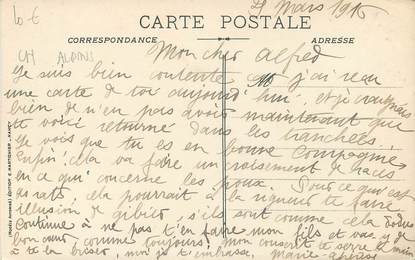 10 €
CH ALPINS
Mars 1916
CARTE POSTALE
CORRESPONDANCE
ADRESSE
Mon cher Alfred
Je suis bien contente j'ai reçu
une carte de toi aujourd'hui et je craignais
bien de n'en pas avoir maintenant que
te voici retourné dans les tranchées
Je vois que tu es en bonne compagnie
Enfin! cela va faire un croisement de races
en ce qui concerne les poux. Pour ce qui est
des rats, cela pourrait à la rigueur te faire
illusion de gibier, s'ils sont comme cela dodus
Continue à ne pas t'en faire mon fils et vas y de
bon cœur comme toujours! Mon te serre la main
à te la briser, moi je t'embrasse. Marie